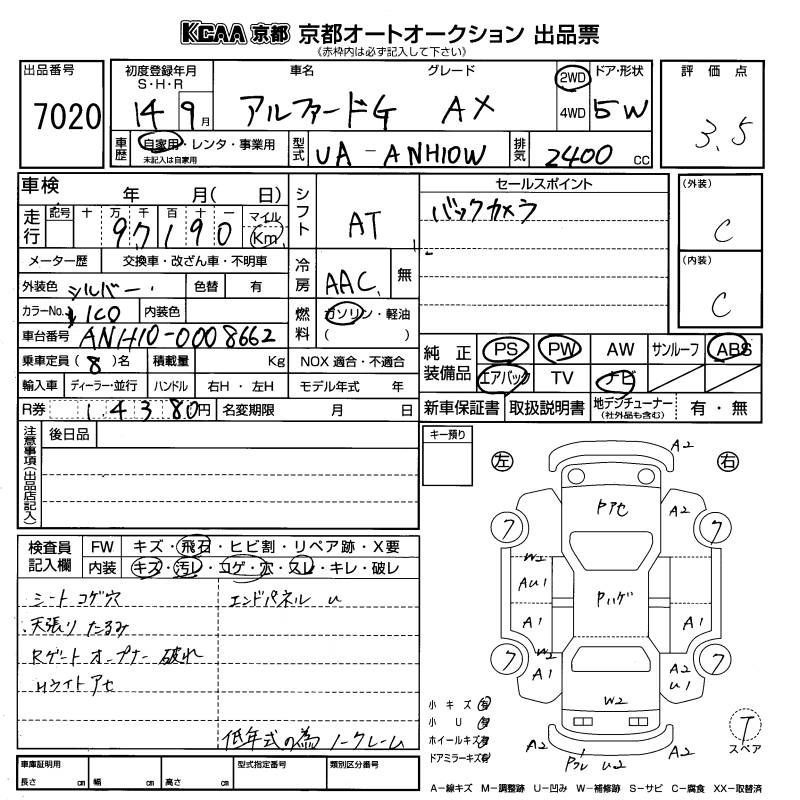 KCAA 京都 京都オートオークション 出品票
(赤枠内は必ず記入して下さい)
出品番号
7020
初度登録年月
S・H・R
14 9月
車名
グレード
アルファードG AX
2WD
4WD
ドア・形状
5W
評価点
3.5
車歴
自家用・レンタ・事業用
未記入は自家用
型式
UA-ANH10W
排気
2400 CC
車検 年 月( 日)
走行
記号 十 万 千 百 十 一
97190
マイル
Km
シフト
AT
セールスポイント
バックカメラ
(外装)
C
(内装)
C
メーター歴 交換車・改ざん車・不明車
外装色 シルバー 色替 有
カラーNo. 1C0 内装色
冷房
AAC
無
燃料
ガソリン・軽油
( )
車台番号 ANH10-0008662
乗車定員(8)名 積載量 Kg NOX 適合・不適合
輸入車 ディーラー・並行 ハンドル 右H・左H モデル年式 年
R券 14380円 名変期限 月 日
純正装備品
PS PW AW サンルーフ ABS
エアバック TV ナビ
新車保証書 取扱説明書 地デジチューナー
(社外品も含む)
有・無
注意事項(出品店記入)
後日品
キー預り
検査員記入欄
FW キズ・飛石・ヒビ割・リペア跡・X要
内装 キズ・汚レ・コゲ・穴・スレ・キレ・破レ
シートコゲ穴
エンドパネル U
天張り たるみ
Rゲートオープナー 破れ
Hライトアセ
低年式の為 ノークレーム
車庫証明用
長さ cm 幅 cm 高さ cm
型式指定番号
類別区分番号
左
右
A2
Pアセ
A2
フ
フ
W2
AU1
Pハゲ
A1
A1
フ
フ
W2
A1
A2
U1
W2
小キズ 有
小U 有
ホイールキズ 有
ドアミラーキズ 有
A2
A2
U2
T
スペア
A-線キズ M-調整跡 U-凹み W-補修跡 S-サビ C-腐食 XX-取替済